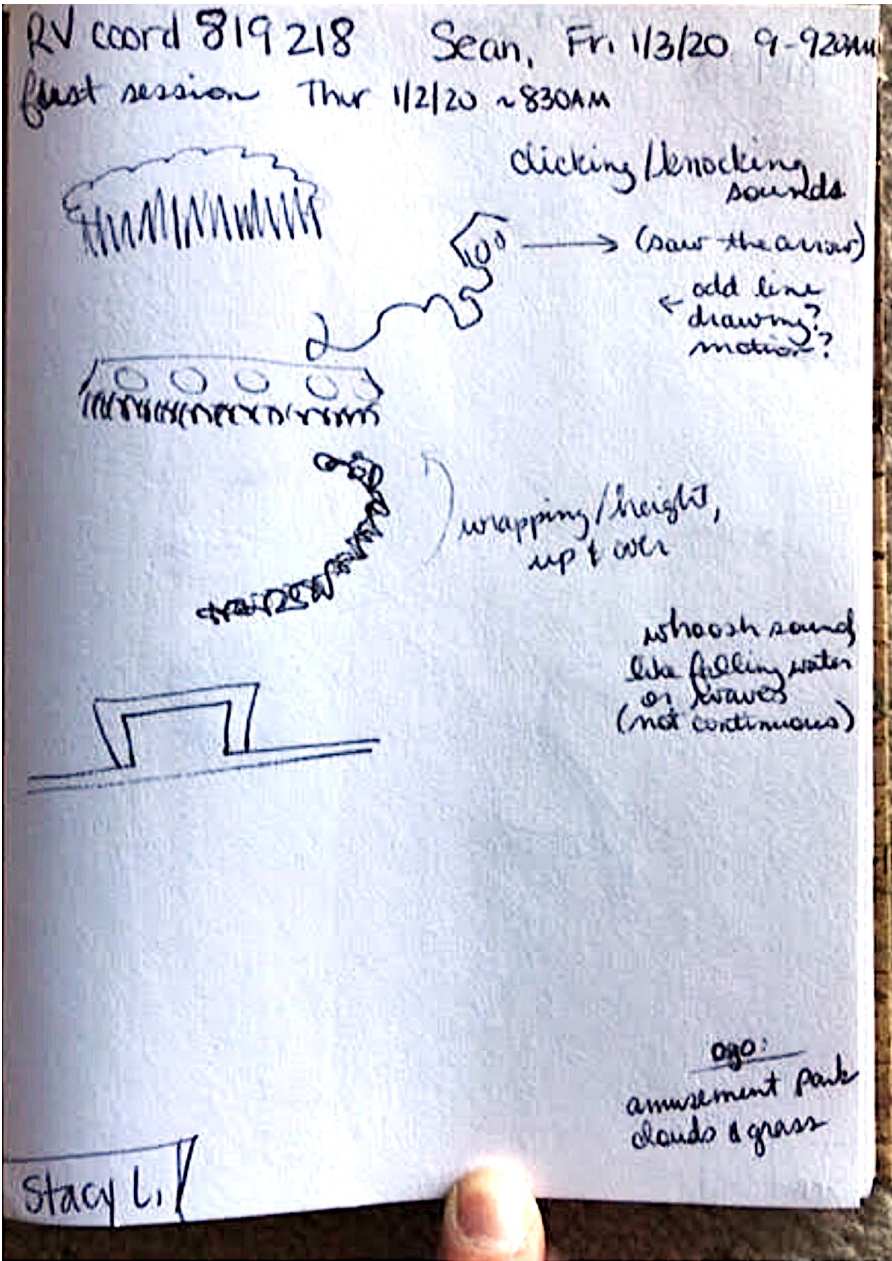 RV coord 819 218 Sean, Fri 1/3/20 9-920AM
first session Thur 1/2/20 ~830AM
clicking/knocking
sounds
(saw the arrow)
odd line
drawing?
motion?
wrapping/height,
up & over
whoosh sound
like falling water
or waves
(not continuous)
amusement park
clouds & grass
Stacy L.